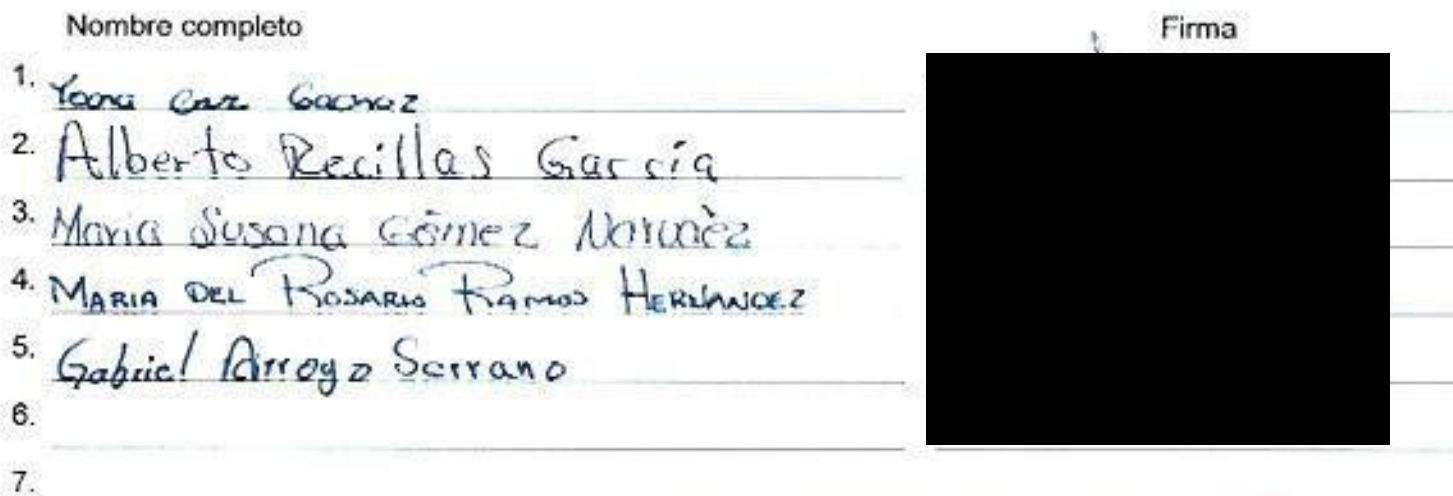 Nombre completo Firma
1.
2. Alberto Recillas García
3. Maria Susana Gómez
4. MARIA DEL ROSARIO RAMOS HERNANDEZ
5. Gabriel Arroyo Serrano
6.
7.